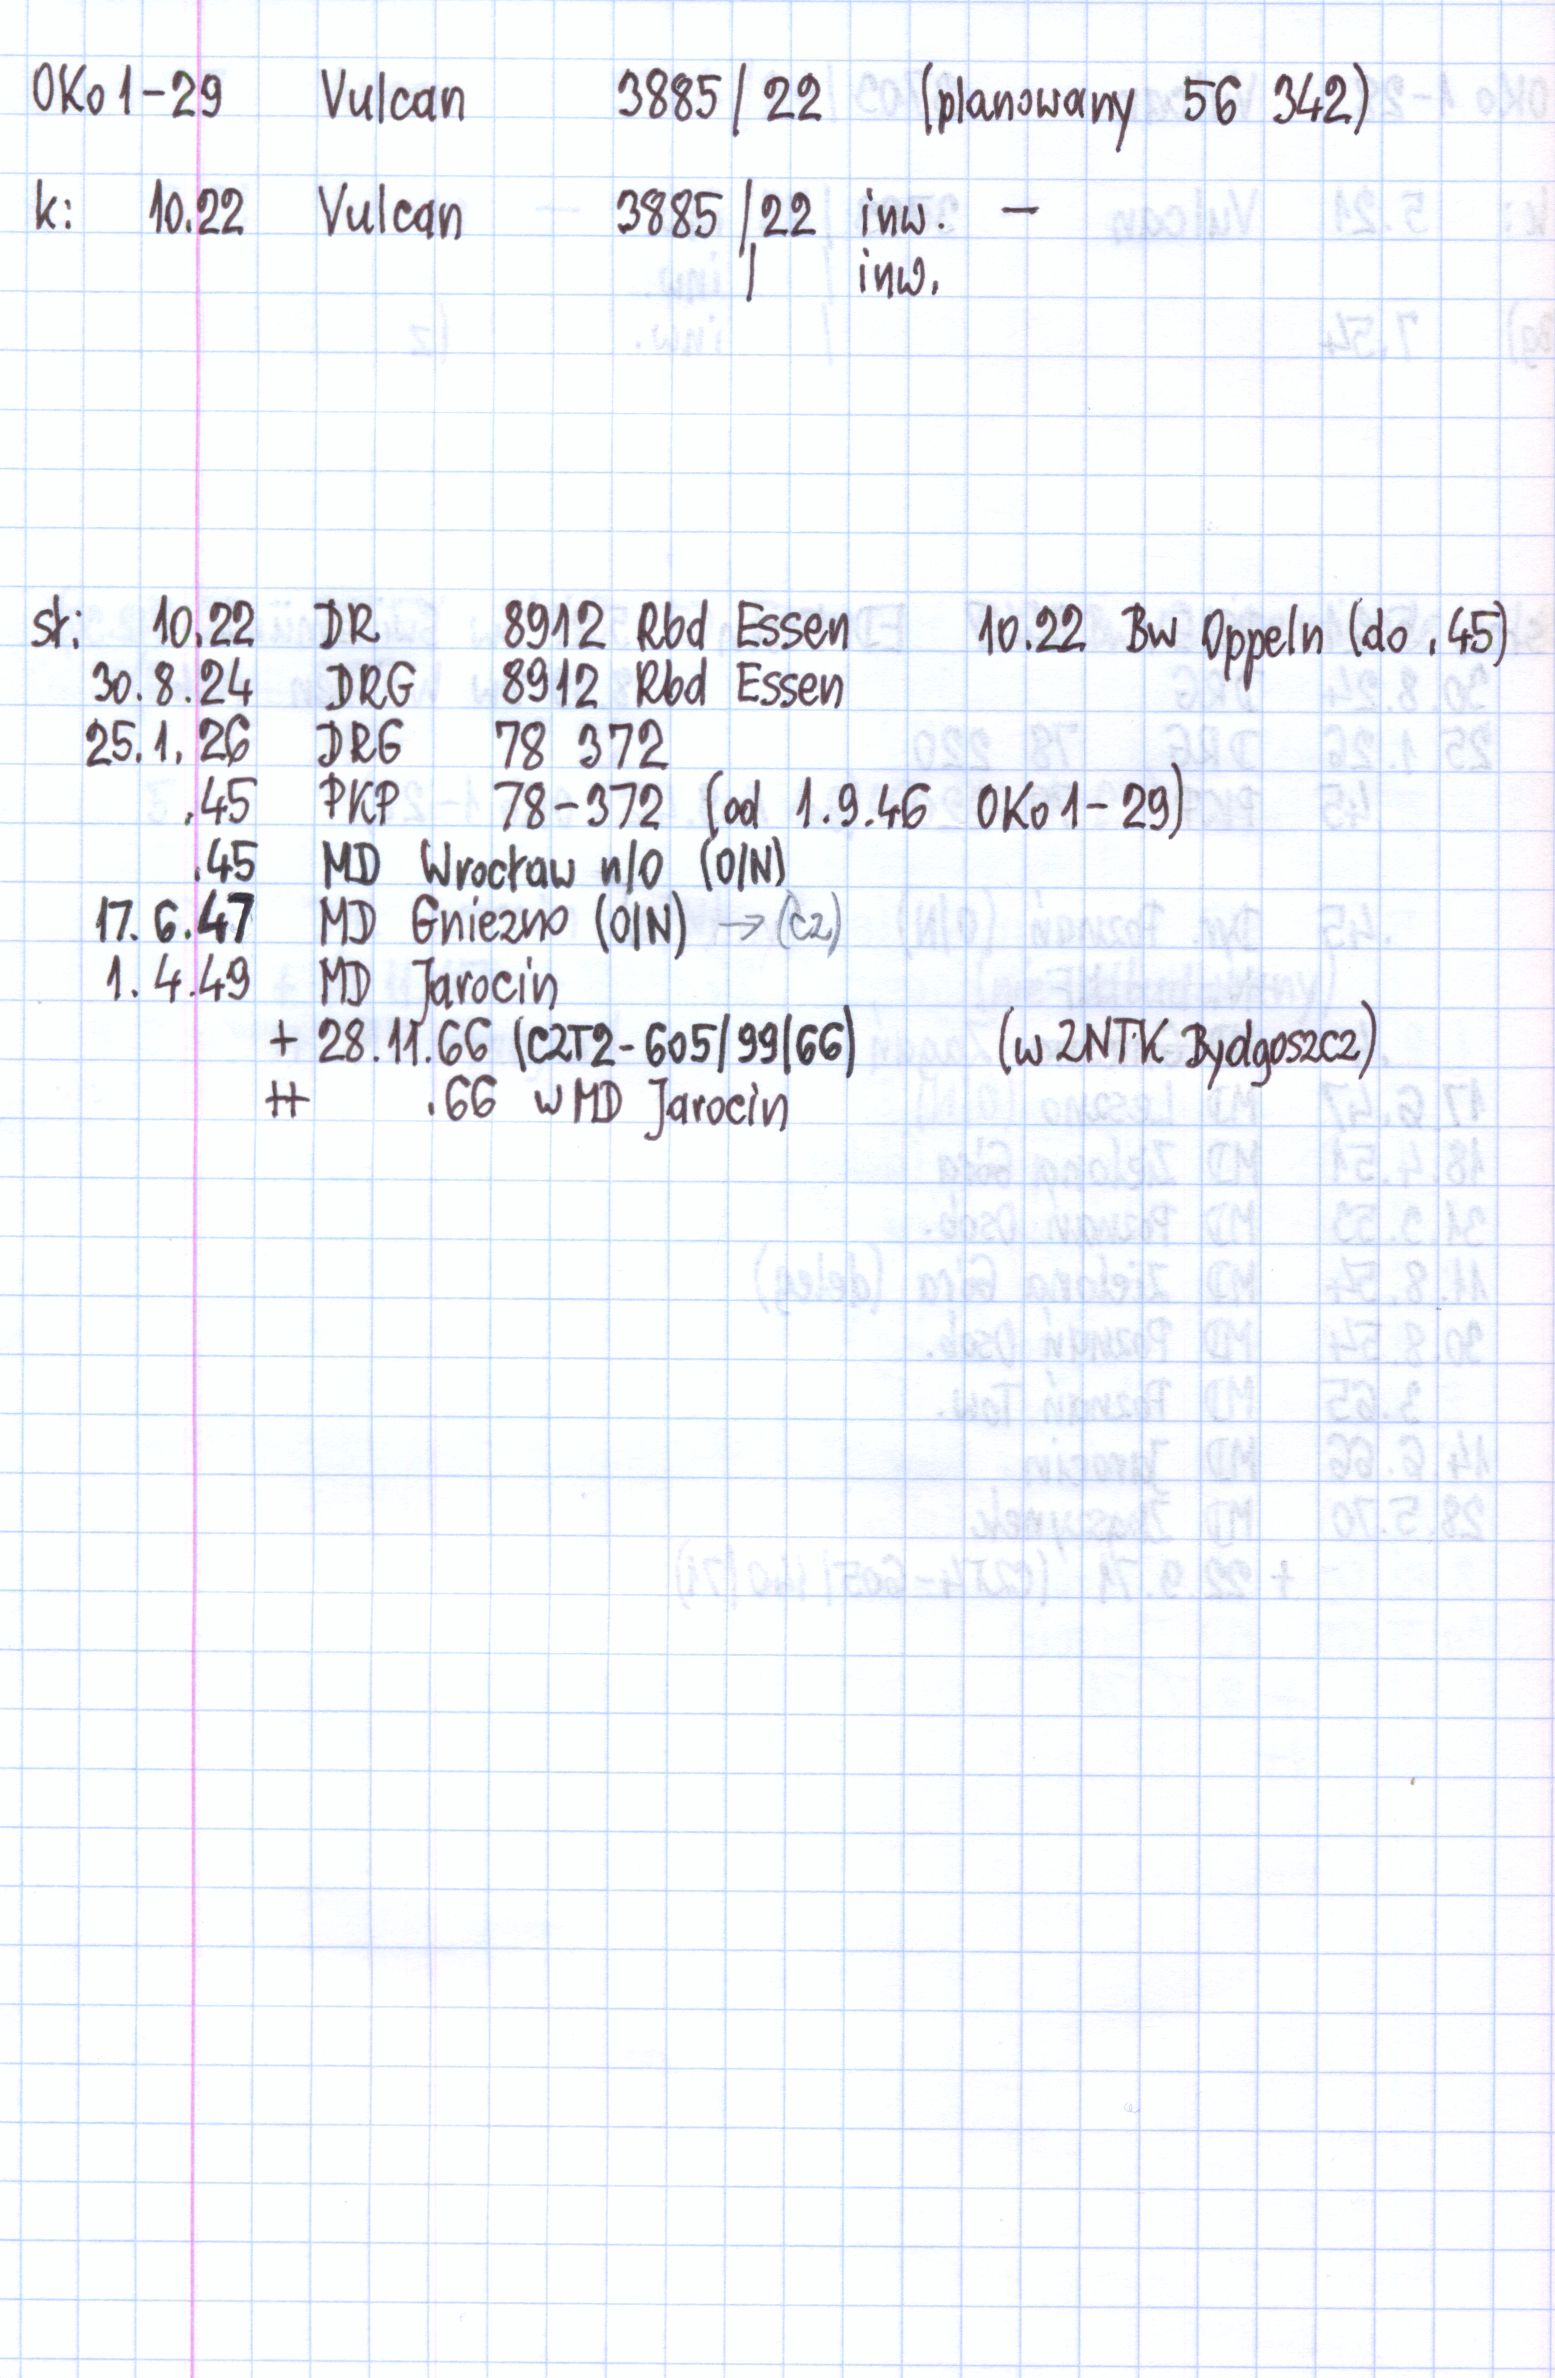 OKo1-29 Vulcan 3885/22 (planowany 56 342)
k: 10.22 Vulcan 3885/22 inw. -
/ inw.
st: 10.22 DR 8912 Rbd Essen 10.22 Bw Oppeln (do .45)
30.8.24 DRG 8912 Rbd Essen
25.1.26 DRG 78 372
.45 PKP 78-372 (od 1.9.46 OKo1-29)
.45 MD Wrocław n/O (O/N)
17.6.47 MD Gniezno (O/N) → (cz)
1.4.49 MD Jarocin
+ 28.11.66 (CZT2-605/99/66) (w ZNTK Bydgoszcz)
++ .66 w MD Jarocin